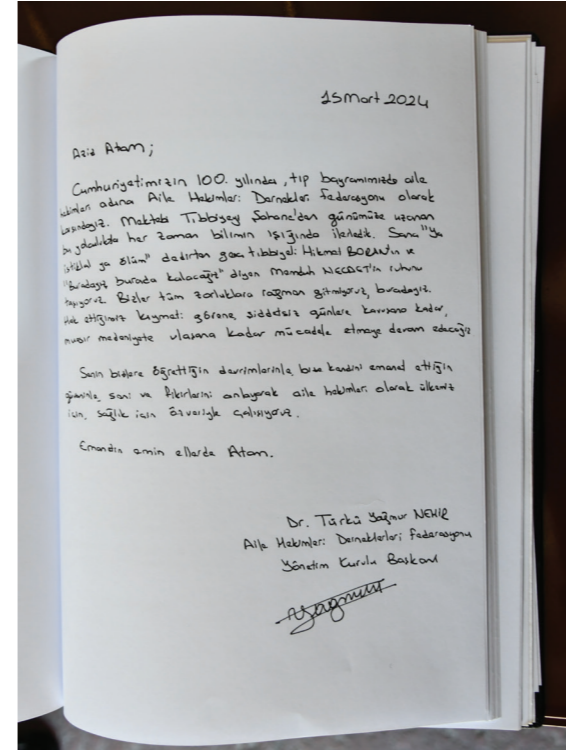 15 Mart 2024
Aziz Atam;
Cumhuriyetimizin 100. yılında, tıp bayramımızda aile
hekimleri adına Aile Hekimleri Dernekleri Federasyonu olarak
karşındayız. Mektebi Tıbbiyey Şahane'den günümüze uzanan
bu yolculukta her zaman bilimin ışığında ilerledik. Sana "Ya
istiklal ya ölüm" dedirten genç tıbbiyeli Hikmet BORAN'ın ve
"Buradayız burada kalacağız" diyen Memduh NECDET'in ruhunu
taşıyoruz. Bizler tüm zorluklara rağmen gitmiyoruz, buradayız.
Hak ettiğimiz kıymeti görene, şiddetsiz günlere kavuşana kadar,
muasır medeniyete ulaşana kadar mücadele etmeye devam edeceğiz
Senin bizlere öğrettiğin devrimlerinle, bize kendini emanet ettiğin
güveninle, seni ve fikirlerini anlayarak aile hekimleri olarak ülkemiz
için, sağlık için özveriyle çalışıyoruz.
Emanetin emin ellerde Atam.
Dr. Türkü Yağmur NEHİR
Aile Hekimleri Dernekleri Federasyonu
Yönetim Kurulu Başkanı
Yağmur